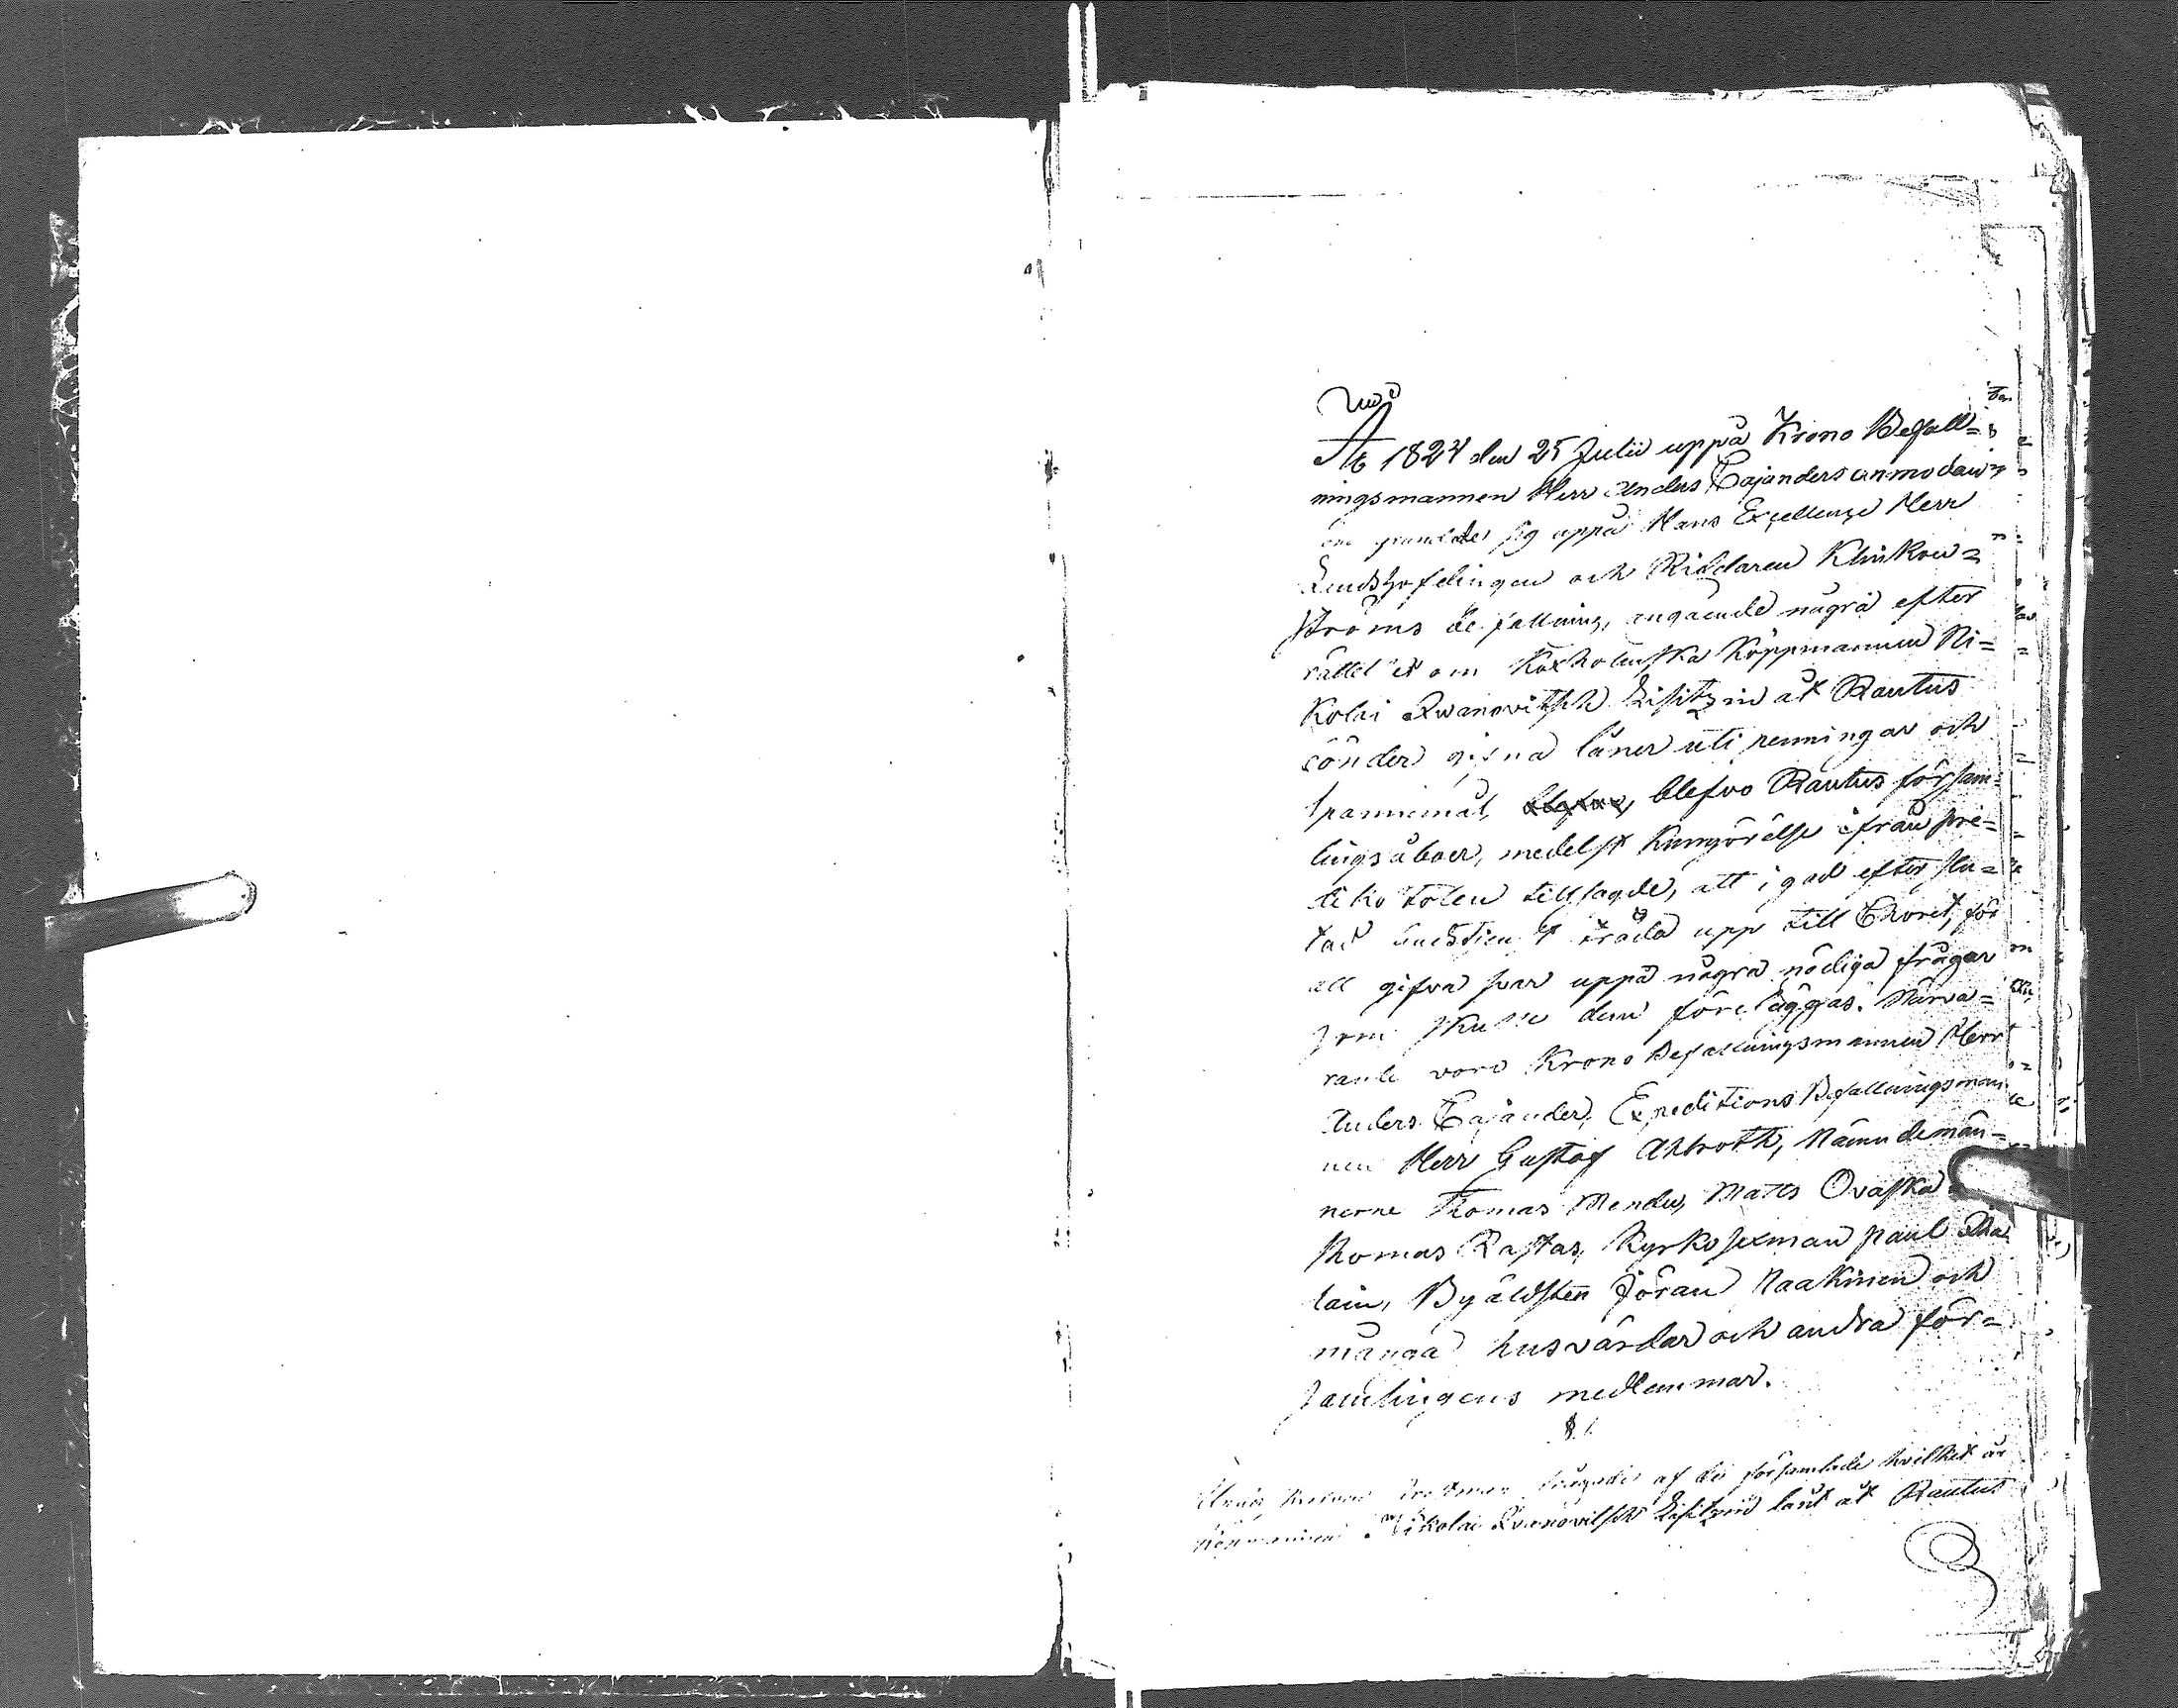 A:o 1824 den 25 Julii uppå Krono Befall=
ningsmannen Herr Anders Cajanders anmodan
grundade sig uppå Hans Excellence Herr
Landshöfdingen och Riddaren Klinkow=
ströms befallning, angående några efter
rättelser om Kexholmska Köppmannen Ni=
kolai Iwanovitsch Lisitzin åt Rautus
bönder gifna låner uti penningar och
spannemål, blefvo Rautus försam=
lingsåboer, medelst kungörelse ifrån pre=
dikostolen tillsagde, att i gad efter slu=
tad Gudstienst träda upp till Choret, för
att gifva svar uppå några nödiga frågor
som skulle dem föreläggas. Närva=
rande voro Krono Befallningsmannen Herr
Anders Cajander, Expeditions Befallningsman
nen Herr Gustaf Ahlroth, Nämndemän=
nerne Thomas Mendu, Matts Ovaska
Thomas Rastas, Kyrkosexman Paul
lain, Byäldsten Jöran Naakinen och
många husvärdar och andra för=
samlingens medlemmar.
§. 1.
frågades af de församlade hvilket år
Köpmannen Nikolai Ivanovitsch Lisitzin lånt åt Rautus